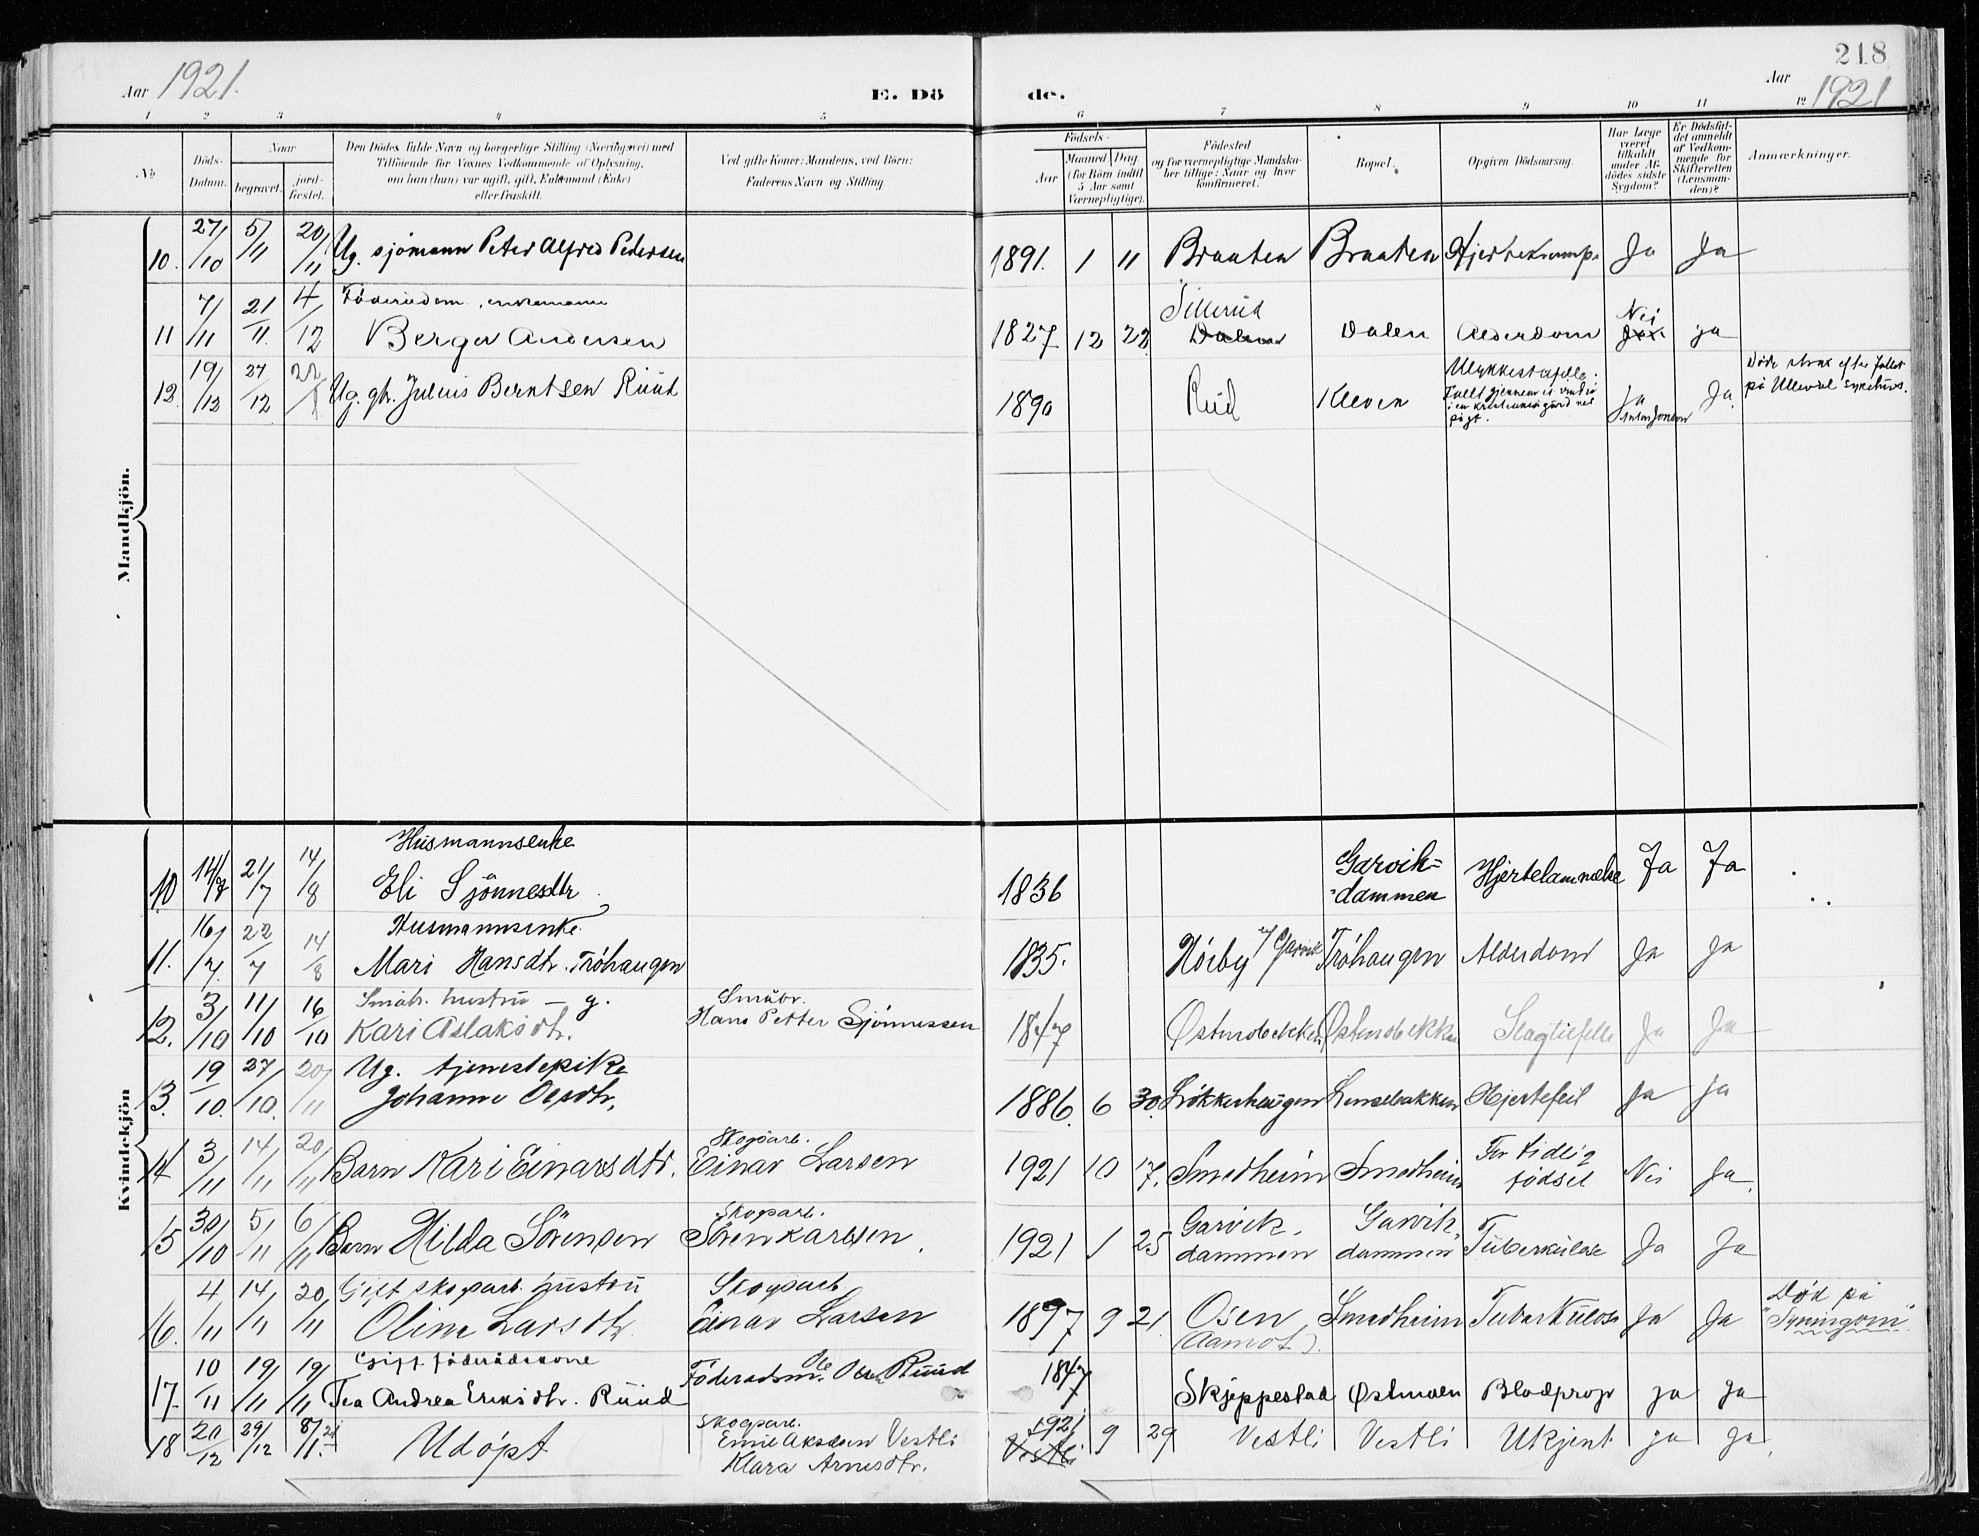 218
Aar 1921.
E. Dö
de.
Aar 1921
1 2 3 4 5 6 7 8 9 10 11 12
No
Döds-Datum.
Naar
begravet.
jord-fæstet.
Den Dödes fulde Navn og borgerlige Stilling (Næringsvei) med
Tilföiende for Voxnes Vedkommende af Oplysning,
om han (hun) var ugift, gift, Enkemand (Enke)
eller fraskilt.
Ved gifte Koner: Mandens, ved Börn:
Faderens Navn og Stilling
Födsels-
Aar
Maaned Dag
(for Börn indtil
5 Aar samt
Værnepligtige).
Födested
og for værnepligtige Mandska-
ber tillige: Naar og hvor
konfirmeret.
Bopæl.
Opgiven Dödsaarsag.
Har Læge
været
tilkaldt
under Af-
dödes sidste
Sygdom?
Er Dödsfal-
det anmeldt
af Vedkom-
mende for
Skifteretten
(Lensman-
den)?
Anmærkninger.
Mandkjön.
10. 27/10 5/11 20/11 Ug. sjömann Peter Alfred Pedersen 1891. 1 11 Braaten Braaten Hjertekramps Ja Ja
Föderådsm. enkemann
11 7/11 21/11. 4/12 Berger Andersen 1827 12 22 Sillerud Dalen Dalen Alderdom Nei Ja ja
12. 19/12 27/12 22/1 Ug. gbr. Julius Berntsen Ruud 1890 Rud Kleven Ulykkestilfelle. Ja Ja
Falt gjennem et vindu
i en Kristiania gård ved
Døde strax efter fallet
på Ullevål sykehus.
Kvindekjön
Husmannsenke
10 14/7 21/7 14/8 Eli Sjönnesdtr 1836 Garvik-
-dammen Hjertelammelse Ja Ja
Husmannsenke
11. 16/7. 22/7 14/8 Mari Hansdtr. Tröhaugen 1835. Hörby Tröhaugen Alderdom Ja Ja
Småbr. hustru - g. Småbr.
12. 3/10 11/10 16/10 Kari Aslaksdtr. Hans Petter Sjönnessen 1847 Østmobekken Østmobekken Slagtilfelle Ja Ja
Ug. tjenestepike
13. 19/10. 27/10. 20/11 Johanne Olsdtr. 1886. 6 30. Lökkerhaugen Hjertefeil Ja Ja
Skogsarb.
14 3/11 14/11 20/11 Barn Kari Einarsdtr. Einar Larsen 1921 10 17. Smedheim Smedheim For tidlig
födsel Nei Ja.
Skogsarb.
15 30/10 5/11 6/11 Barn Hilda Sörensen Sören Karlsen. 1921 1 25 Garvik-
dammen Garvik-
dammen Tuberkulose Ja Ja
Gift skogsarb. hustru Skogsarb
16. 4/11 14/11 20/11 Oline Larsdtr. Einar Larsen 1897 9 21. Osen
(Aamot). Smedheim Tuberkulose Ja Ja Død på
"Syningom"
Gift föderådskone
17. 10/11 19/11 19/11 Tea Andrea Eriksdtr. Ruud Föderadsm. Ole Olsen Ruud 1847 Skjeppestad Østmoen Blodprop ja ja
18 20/12 29/12 8/1. 21 Udöpt Skogsarb.
Emil Aksdsen Vestli
Klara Arnesdtr. 1921
Vestli 9 29 Vestli Vestli Ukjent ja ja.